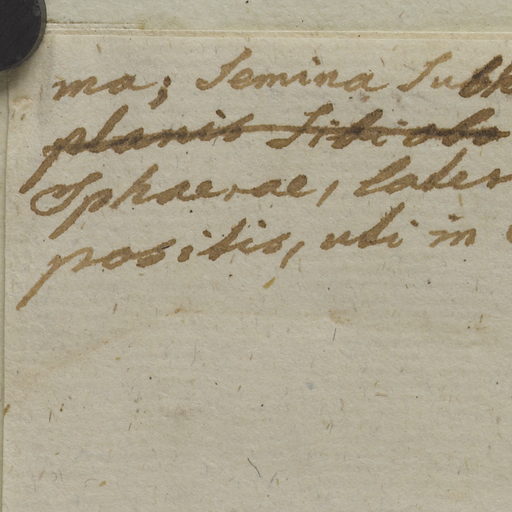 ma; Semina Sub
planis Sibi
Sphaerae, later
positis, uti in